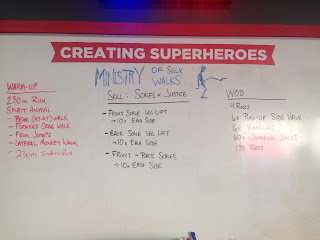 CREATING SUPERHEROES
MINISTRY OF SILLY WALKS
WARM-UP
230m RUN
SPIRIT ANIMAL
- BEAR (AT-AT) WALK
- FORWARD CRAB WALK
- FROG JUMPS
- LATERAL MONKEY WALK
- 230m
SKILL: SCALES OF JUSTICE
- FRONT SCALE LEG LIFT
→ 10x EACH SIDE
- BACK SCALE LEG LIFT
→ 10x EACH SIDE
- FRONT + BACK SCALES
→ 10x EACH SIDE
WOD
4 RNDS
6x PUSH-UP SIDE WALK
6x BURPEES
JUMPING JACKS
:30 REST